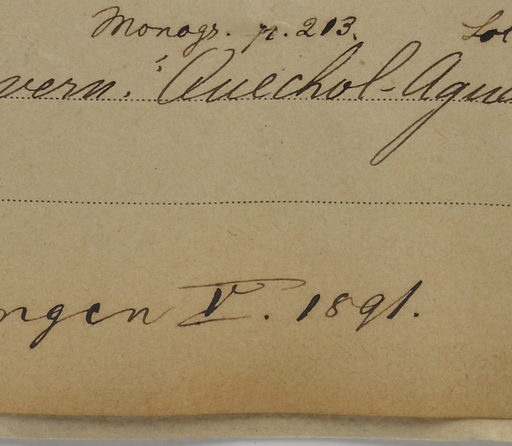 Monogr. p. 213. Lot
vern.: Quechol-Ague
ngen V. 1891.